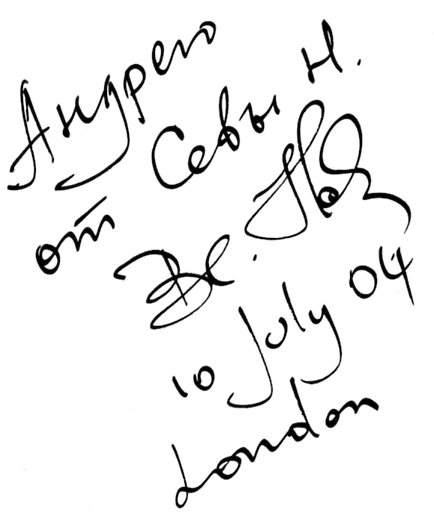 Андрею
от Севы Н.
Вс. Нов
10 July 04
London